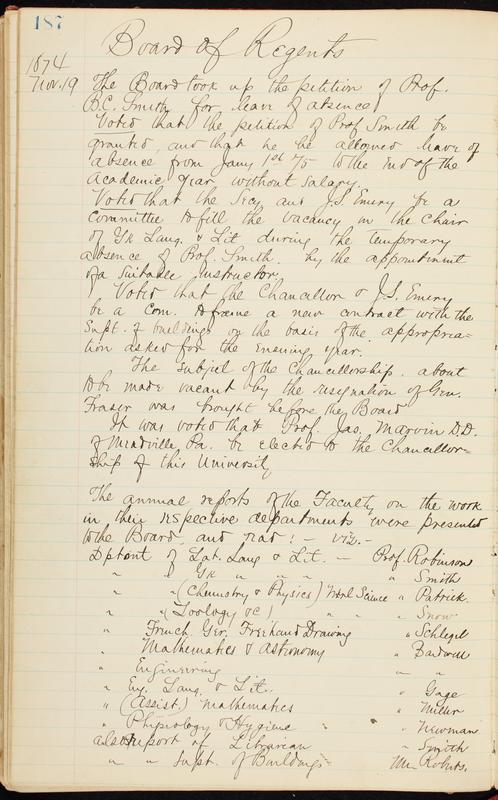 187
Board of Regents
1874
Nov. 19 The Board took up the petition of Prof.
B.C. Smith for leave of absence
Voted that the petition of Prof Smith be
granted, and that he be allowed leave of
absence from Jany 1st 75 to the End of the
Academic year without salary.
Voted that the Secy and J.S. Emery be a
Committee to fill the vacancy in the Chair
of Gk Lang. & Lit during the temporary
absence of Prof. Smith by the appointment
of a suitable instructor.
Voted that the Chancellor & J.S. Emery
be a Com. to frame a new contract with the
Supt. of buildings on the basis of the appropria-
tion asked for the Ensuing year.
The subject of the Chancellorship about
to be made vacant by the resignation of Gen.
Fraser was brought before the Board
It was voted that Prof. Jas. Marvin D.D.
of Meadville Pa. be elected to the Chancellor-
ship of this University
The annual reports of the Faculty on the work
in their respective departments were presented
to the Board, and read: - viz. -
Dptmt of Lat. Lang & Lit. - Prof. Robinson
" " Gk " " " " Smith
" " (Chemistry & Physics) Science " Patrick.
" " (Zoology &c) " " " Snow
" French, Ger. Freehand Drawing " Schlegel
" Mathematics & Astronomy " Bardwell
" Engineering " "
" Eng. Lang. & Lit. " Gage
" (Assist.) Mathematics " Miller
" Physiology & Hygiene " " Newman
also Report of Librarian " Smith
" " Supt. of Buildings Mr. Roberts.